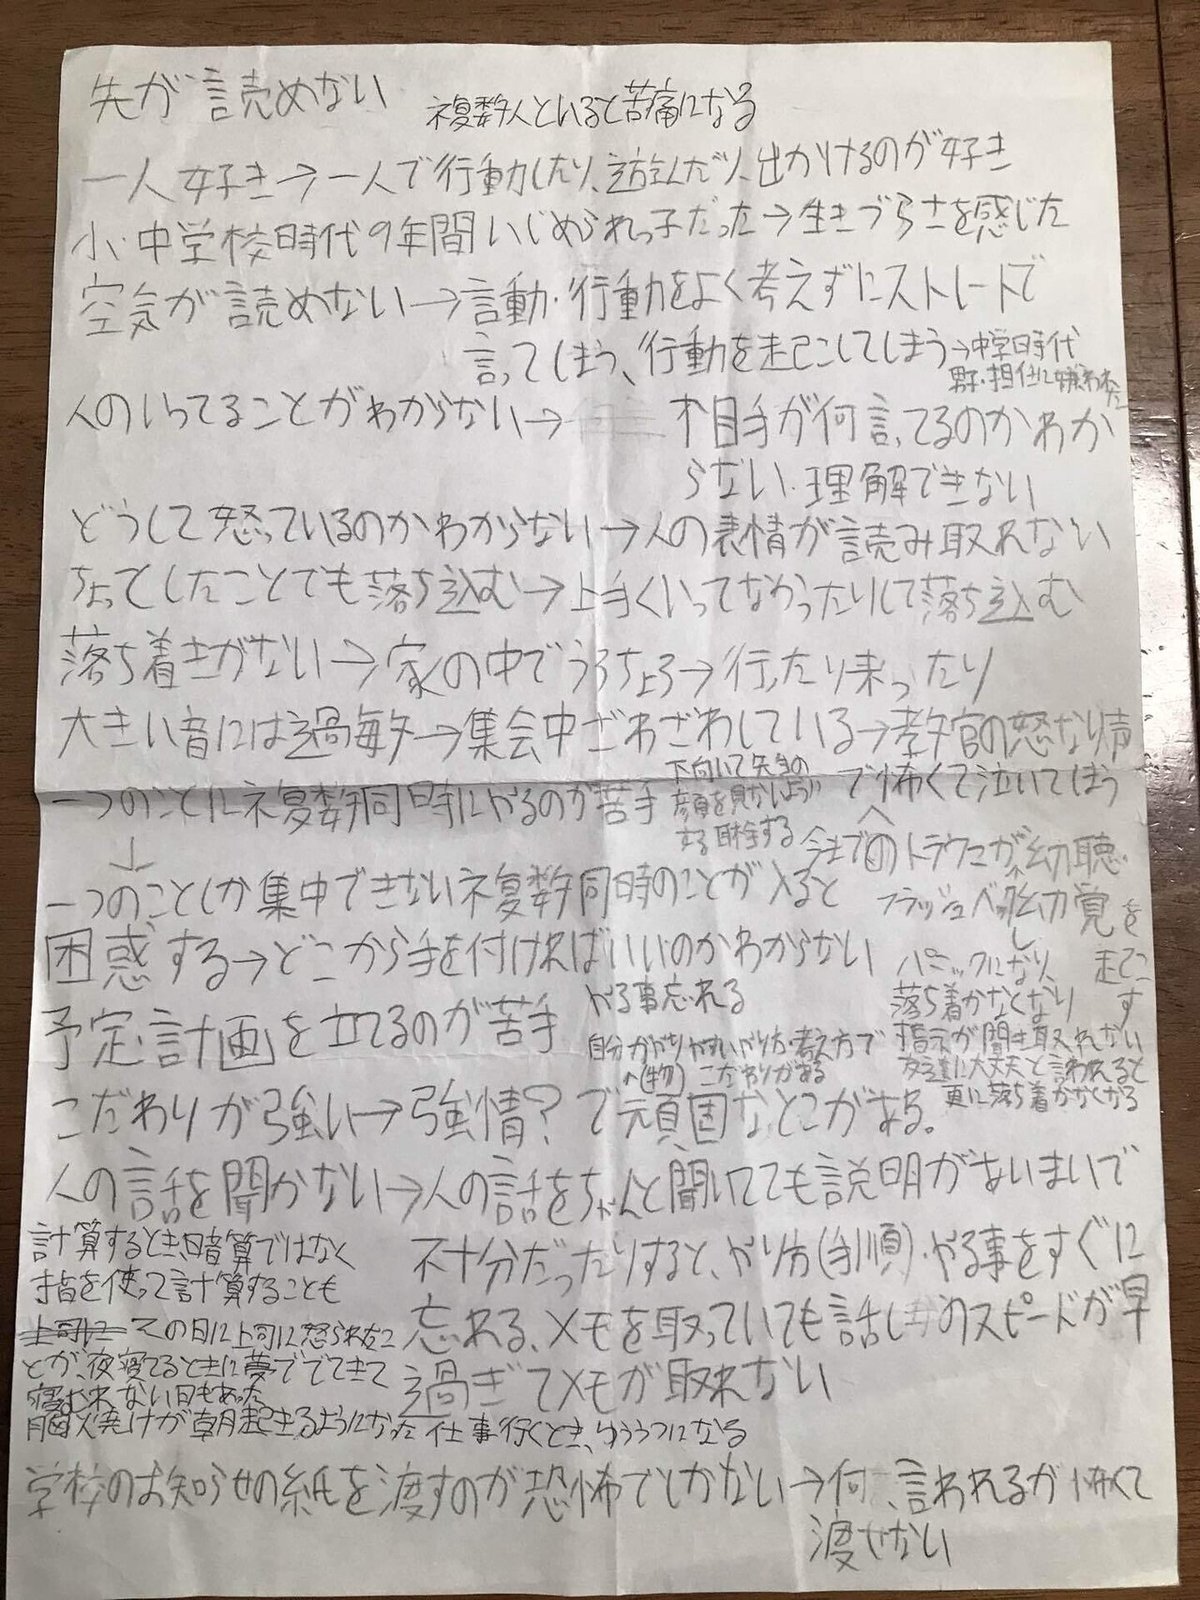 先が読めない
複数人といると苦痛になる
一人好き→一人で行動したり、遊んだり、出かけるのが好き
小・中学校時代9年間いじめられっ子だった→生きづらさを感じた
空気が読めない→言動・行動をよく考えずにストレートで
言ってしまう、行動を起こしてしまう→中学時代
男子・担任に嫌われた
人のいってることがわからない→
相手が何言ってるのかわか
らない・理解できない
どうして怒っているのかわからない→人の表情が読み取れない
ちょっとしたことでも落ち込む→上手くいってなかったりして落ち込む
落ち着きがない→家の中でうろちょろ→行ったり来ったり
大きい音には過敏→集会中ざわざわしている→教官の怒なり声
で怖くて泣いてしまう
下向いて先生の
顔を見ないよう
する
一つのことに複数同時にやるのが苦手
↓
今までのトラウマが幻聴・
フラッシュバック幻覚を
起こす
し
パニックになり、
落ち着かなくなり
指示が聞き取れない
友達に大丈夫と言われると
更に落ち着かなくなる
一つのことしか集中できない複数同時のことが入ると
困惑する→どこから手を付ければいいのかわからない
やる事忘れる
予定・計画を立てるのが苦手
自分がやりやすいやり方・考え方で
(物)こだわりがある
こだわりが強い→強情?で頑固なとこがある。
人の話を聞かない→人の話をちゃんと聞いてても説明があいまいで
不十分だったりすると、やり方(手順)・やる事をすぐに
忘れる、メモを取っていても話し方のスピードが早
過ぎてメモが取れない
計算するとき暗算ではなく
指を使って計算することも
上司に その日に上司に怒られたこ
とが、夜寝てるときに夢ででてきて
寝むれない日もあった
胸火焼けが朝起きるようになった 仕事行くとき、ゆううつになる
学校のお知らせの紙を渡すのが恐怖でしかない→何、言われるが怖くて
渡せない